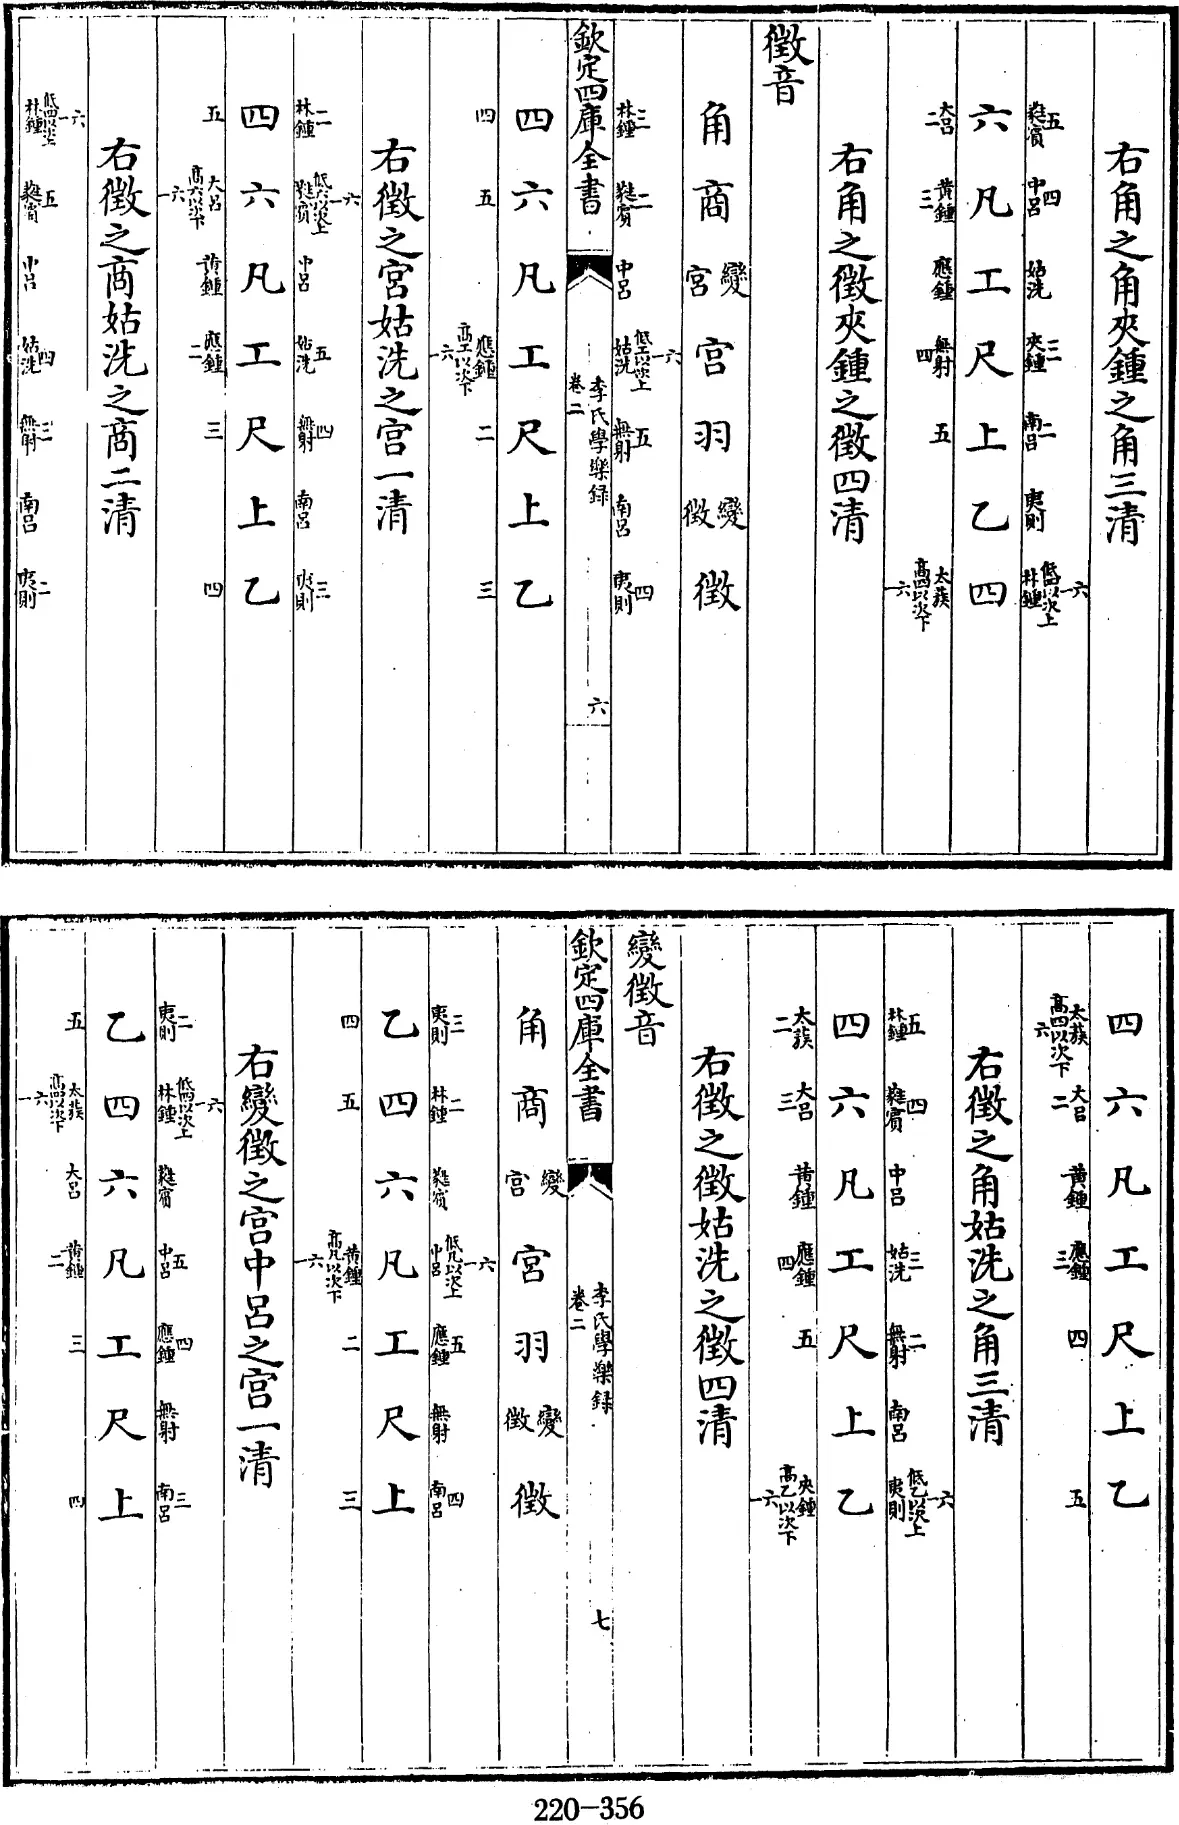 右角之角夾鍾之角三清
五蕤賓 四中呂 姑洗 三夾鍾 二南呂 夷則 一六低四以次上林鍾
六凡工尺上乙四
大呂二 黃鍾三 應鍾 無射四 五 太蔟高四以次下一六
右角之徵夾鍾之徵四清
徵音
角商變宮宮羽變徵徵
三林鍾 二蕤賓 中呂 一六低工以次上姑洗 五無射 南呂 四夷則
欽定四庫全書 李氏學樂録 卷二 六
四六凡工尺上乙
四 五 應鍾高工以次下一六 二 三
右徵之宮姑洗之宮一清
二林鍾 一六低六以次上蕤賓 中呂 五姑洗 四無射 南呂 三夷則
四六凡工尺上乙
五 大呂高六以次下一六 黃鍾 應鍾二 三 四
右徵之商姑洗之商二清
一六低四以次上林鍾 五蕤賓 中呂 四姑洗 三無射 南呂 二夷則
四六凡工尺上乙
太蔟高四以次下一六 大呂二 黃鍾 應鍾三 四 五
右徵之角姑洗之角三清
五林鍾 四蕤賓 中呂 三姑洗 二無射 南呂 一六低乙以次上夷則
四六凡工尺上乙
太蔟二 大呂三 黃鍾 應鍾四 五 夾鍾高乙以次下一六
右徵之徵姑洗之徵四清
變徵音
欽定四庫全書 李氏學樂録 卷二 七
角商變宮宮羽變徵徵
三夷則 二林鍾 蕤賓 一六低凡以次上中呂 五應鍾 無射 四南呂
乙四六凡工尺上
四 五 黃鍾高凡以次下一六 二 三
右變徵之宮中呂之宮一清
二夷則 一六低四以次上林鍾 蕤賓 五中呂 四應鍾 無射 三南呂
乙四六凡工尺上
五 太蔟高四以次下一六 大呂 黃鍾二 三 四
220-356